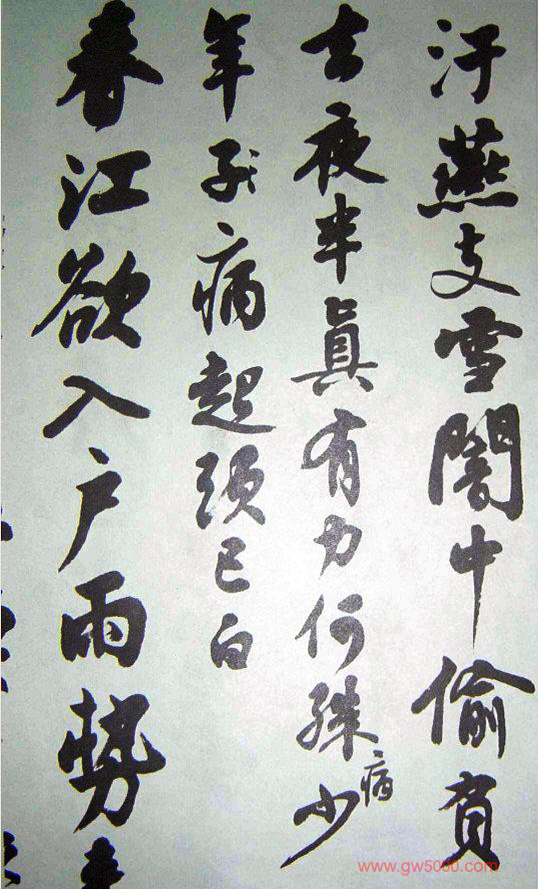 汙燕支雪闇中偷負
去夜半眞有力何殊病少
年子病起頭已白
春江欲入戶雨勢
www.gw5000.com